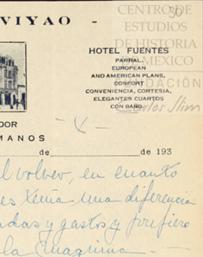 VIYAO -
CENTRO DE
ESTUDIOS
DE HISTORIA
DE MEXICO
FUNDACIÓN
Carlos Slim
HOTEL FUENTES
PARRAL.
EUROPEAN
AND AMERICAN PLANS,
CONFORT
CONVENIENCIA, CORTESIA,
ELEGANTES CUARTOS
CON BAÑO.
- X -
DOR
MANOS
de de 193
l volver, en cuanto
es tenia una diferencia
adas y gastos y prefiero
la maquina -